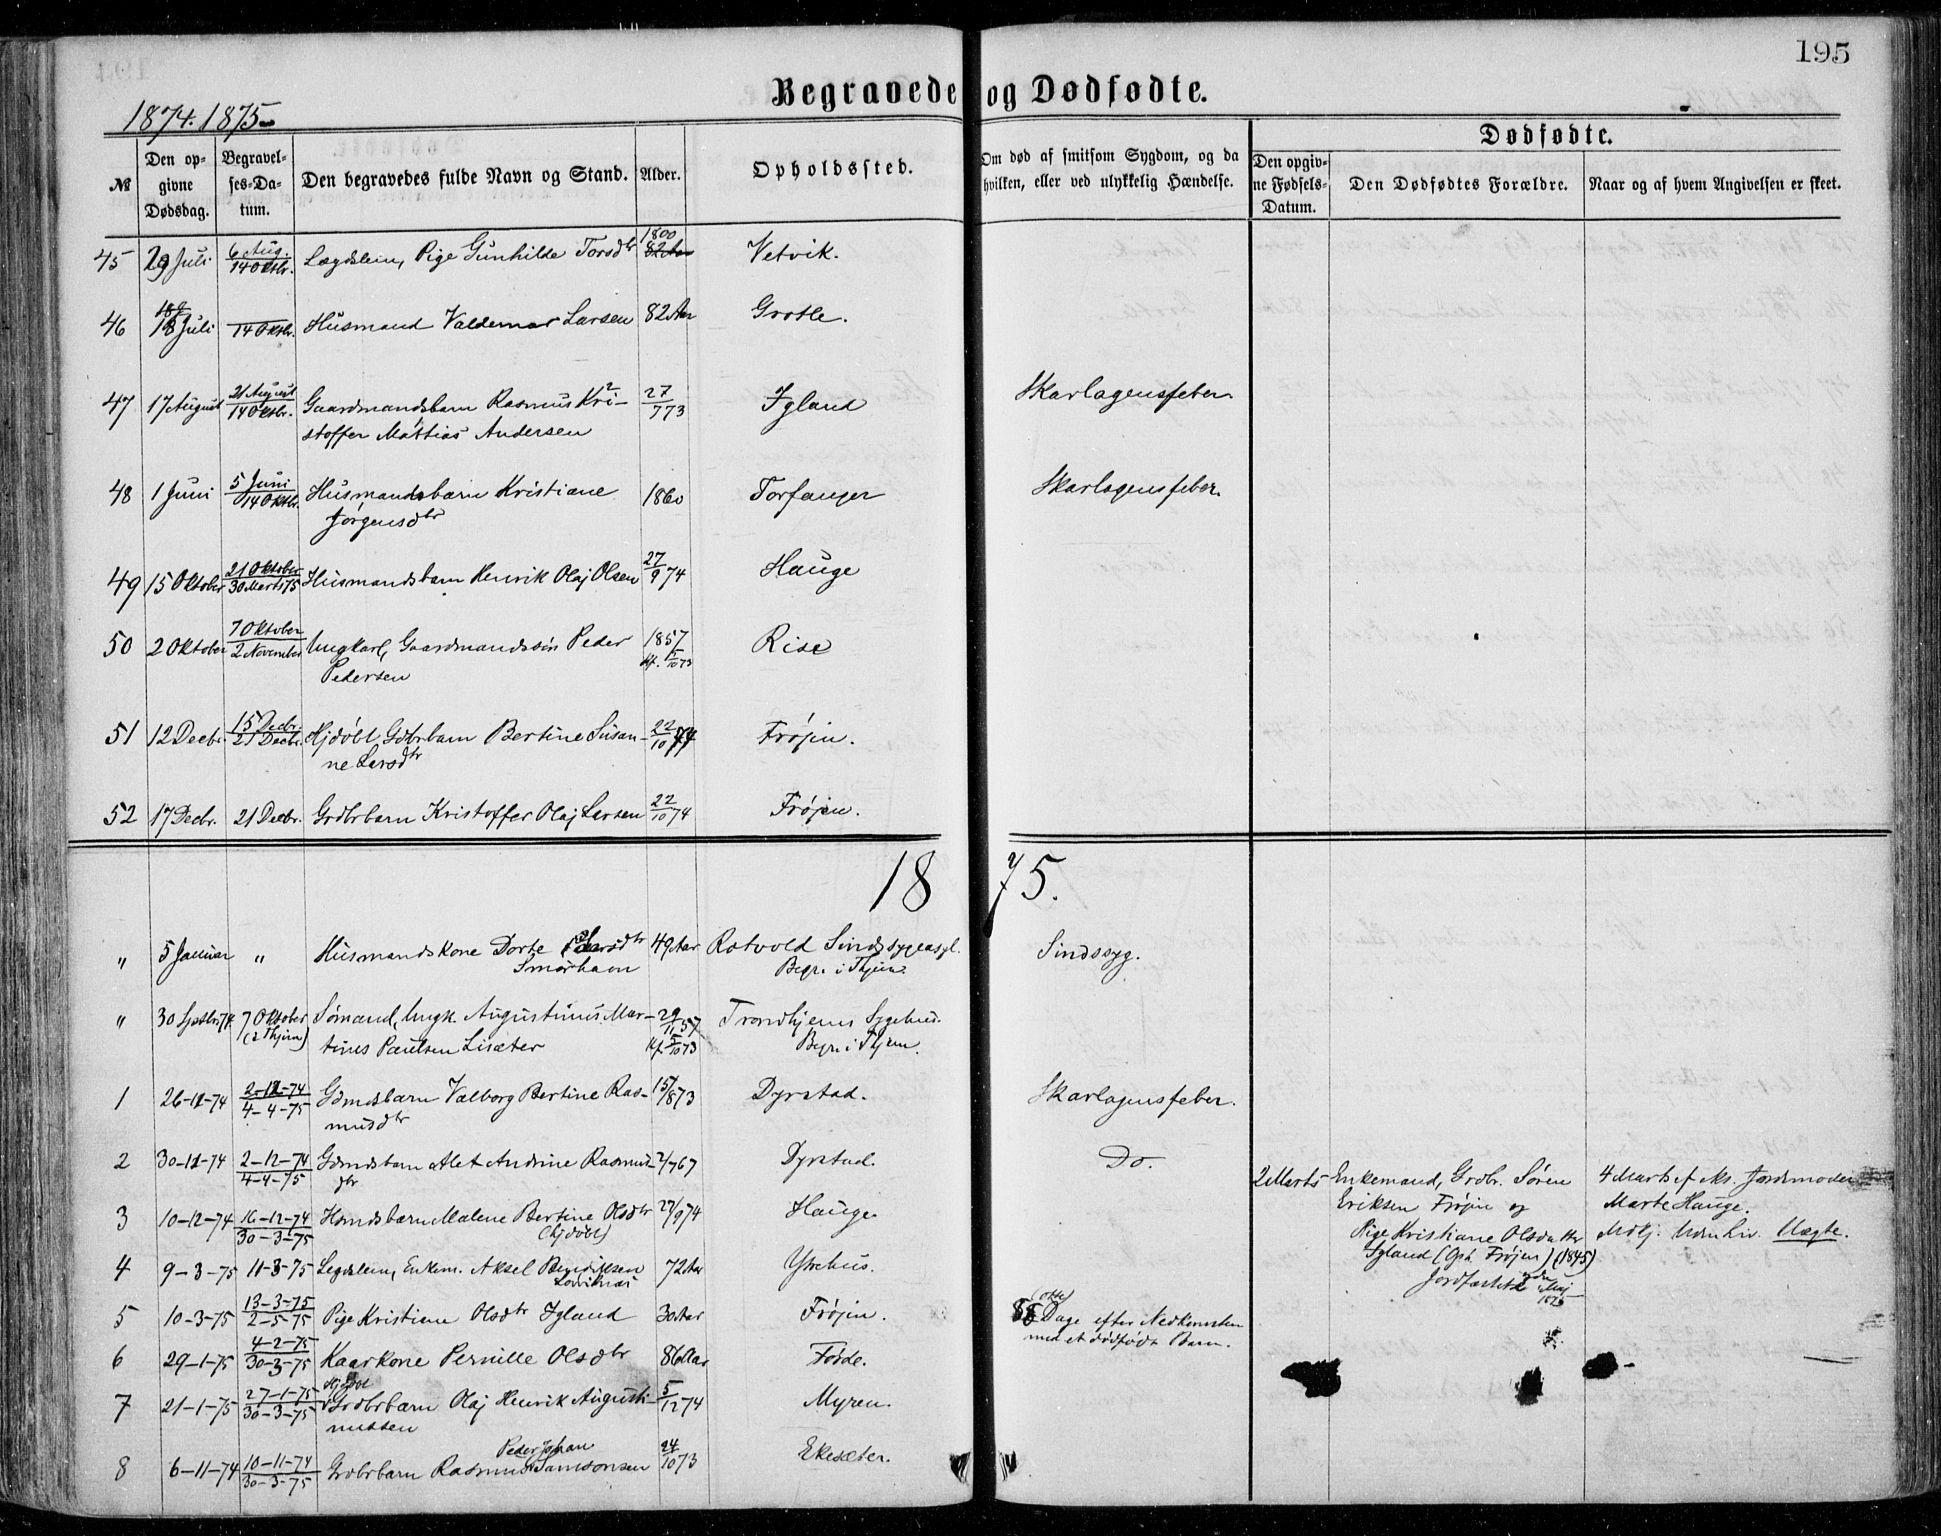 195
Begravede og Dødfødte.
1874. 1875
№ Den opgivne Dødsdag. Begravelses-Datum. Den begravedes fulde Navn og Stand. Alder. Opholdssted. Om død af smitsom Sygdom, og da hvilken, eller ved ulykkelig Hændelse. Dødfødte. Den opgivne Fødsels-Datum. Den Dødfødtes Forældre. Naar og af hvem Angivelsen er skeet.
1800
45 29 Juli 6 Aug. 14 Oktbr. Lægdslem, Pige Gunhilde Torsdtr 82 Aar Vetvik.
46 18 Juli 14 Oktbr. Husmand Valdemar Larsen 82 Aar Grotle.
47 17 August 21 August 14 Oktbr. Gaardmandsbarn Rasmus Kri- 27/7 73 Igland Skarlagensfeber
stoffer Mattias Andersen
48 1 Juni 5 Juni 14 Oktbr. Husmandsbarn Kristiane 1860 Torfanger Skarlagensfeber.
Jørgensdtr
49 15 Oktober 21 Oktober 30 Marts 75 Husmandsbarn Henrik Olaj Olsen 27/9 74 Hauge
50 2 Oktober 7 Oktober 2 November Ungkarl, Gaardmandssøn Peder 1857 Rise
Pedersen Kf. 5/10 73
51 12 Decbr. 15 Decbr. 21 Decbr. Hjdøbt Gdbrbarn Bertine Susan- 22/10 74 Frøjen.
ne Larsdtr
52 17 Decbr. 21 Decbr. Grdbrbarn Kristoffer Olaj Larsen 22/10 74 Frøjen.
1875.
" 5 Januar " Husmandskone Dorte Larsdtr 49 Aar Rotvold Sindssygeasyl. Sindssyg.
Smørhavn Begr. i Thjem.
" 30 Septbr. 74 7 Oktober Sømand, Ungk. Augustinus Mar- 29/11 57 Trondhjems Sygehus.
(i Thjem) tinus Paulsen Lisæter Kf. 5/10 73 Begr. i Thjem.
1 26-11-74 2-12-74 4-4-75 Gdmdsbarn Valborg Bertine Ras- 15/8 73 Dyrstad. Skarlagensfeber.
musdtr
2 30-11-74 2-12-74 4-4-75 Gdmdsbarn Alet Andrine Rasmus- 2/7 67 Dyrstad. Do.
dtr
2 Marts Enkemand, Grdbr. Søren 4 Marts af Jordmoder
Eriksen Frøjen og Marte Hauge.
Pige Kristiane Olsdatter Uægte.
Igland (Oph. Frøjen) (1845)
Jordfæstet
3 10-12-74 16-12-74 30-3-75 Hsmdsbarn Malene Bertine Olsdtr 27/9 74 Hauge.
(hjdøbt)
4 9-3-75 11-3-75 Legdslem, Enkem. Aksel Bendiksen 72 Aar Ytrehus.
5 10-3-75 13-3-75 2-5-75 Pige Kristiane Olsdtr Igland 30 Aar Frøjen. 8 (otte) Dage efter Nedkomsten
med et dødfødt Barn.
6 29-1-75 4-2-75 30-3-75 Kaarkone Pernille Olsdtr 86 Aar Førde.
Hjdøbt
7 21-1-75 27-1-75 30-3-75 Grdbrbarn Olaj Henrik Augusti- 5/12 74 Myren.
nussen
Peder Johan
8 6-11-74 10-11-74 30-3-75 Grdbrbarn Rasmus Samsonsen 24/10 73 Ekesæter.